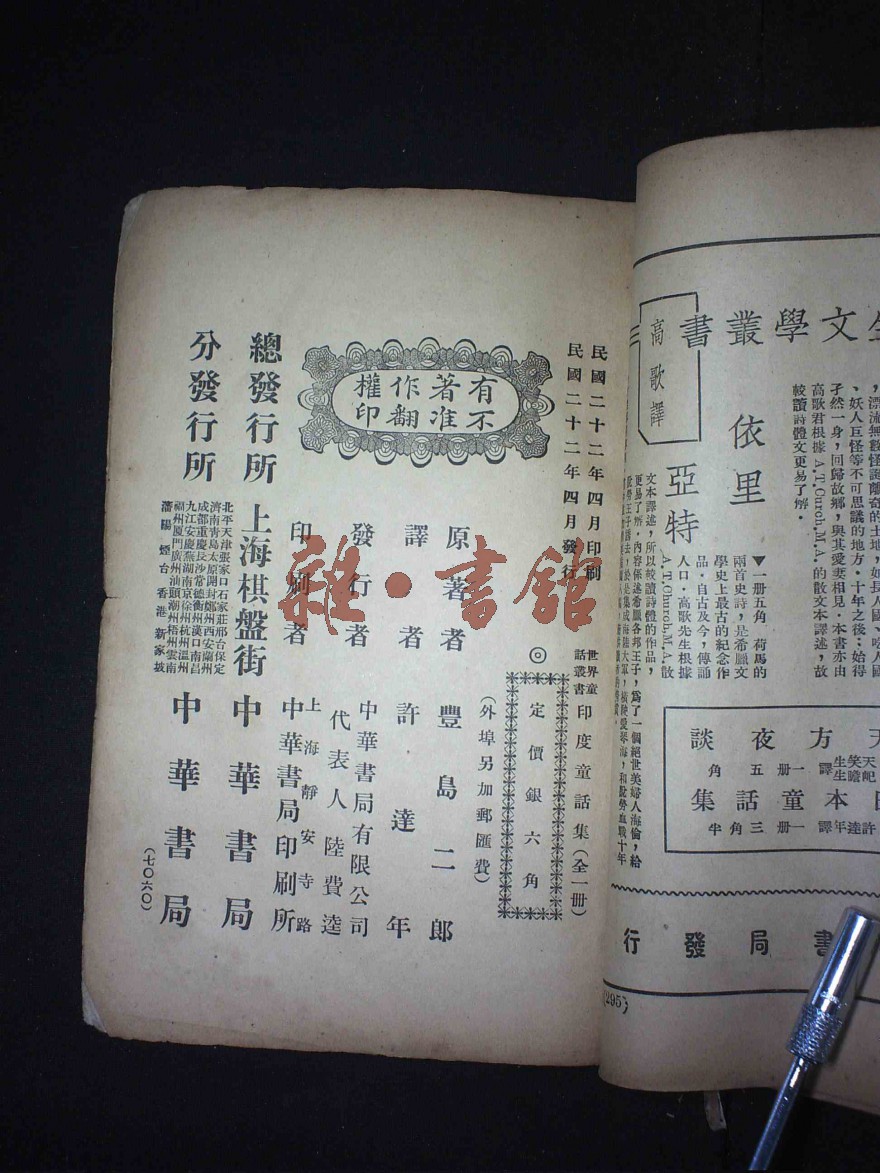 文學叢書
高歌譯
依里亞特
▼一册五角 荷馬的
兩首史詩，是希臘文
學史上最古的紀念作
品．自古及今，傳誦
人口．高歌先生根據
A.T.Church,M.A.散
文本譯述，所以較讀詩體的作品，
更易了解．內容係述希臘各邦王子，爲了一個絕世美婦人海倫，給
，漂流無數怪誕離奇的土地，如長人國、吃人國
、妖人巨怪等不可思議的地方．十年之後，始得
孑然一身，回歸故鄉，與其愛妻相見．本書亦由
高歌君根據 A.T.Curoh,M.A. 的散文本譯述，故
較讀詩體文更易了解．
天方夜談
天笑生
一册五角
日本童話集
許達年譯
一册三角半
書局發行
(295)
民國二十二年四月印刷
民國二十二年四月發行
世界童話叢書
印度童話集（全一册）
◎定價銀六角
（外埠另加郵匯費）
有著作權
不准翻印
原著者 豐島二郎
譯者 許達年
發行者 中華書局有限公司
代表人 陸費逵
印刷者 上海靜安寺路
中華書局印刷所
總發行所 上海棋盤街 中華書局
分發行所
北平天津張家口石家莊邢台保定
濟南青島太原開封鄭州西安蘭州
成都重慶長沙常德衡州漢口南昌
九江安慶蕪湖南京徐州杭州溫州
福州厦門廣州汕頭潮州梧州雲南
瀋陽煙台香港新家坡
中華書局
（七〇六〇）
雜·書館